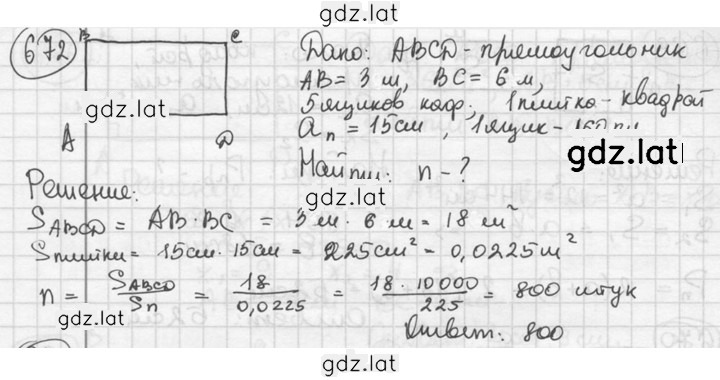 gdz.lat
672
B C
Дано: ABCD - прямоугольник
AB = 3 м, BC = 6 м,
gdz.lat
5 ящиков каф; 1 плитка - квадрат
aₙ = 15см, 1 ящик -
gdz.lat
A D
Найти: n - ?
gdz.lat
Решение:
S ABCD = AB · BC = 3 м · 6 м = 18 м²
Sплитки = 15см · 15см = 225см² = 0,0225м²
n = S ABCD / Sп = 18 / 0,0225 = 18 · 10000 / 225 = 800 штук
gdz.lat
Ответ: 800
gdz.lat